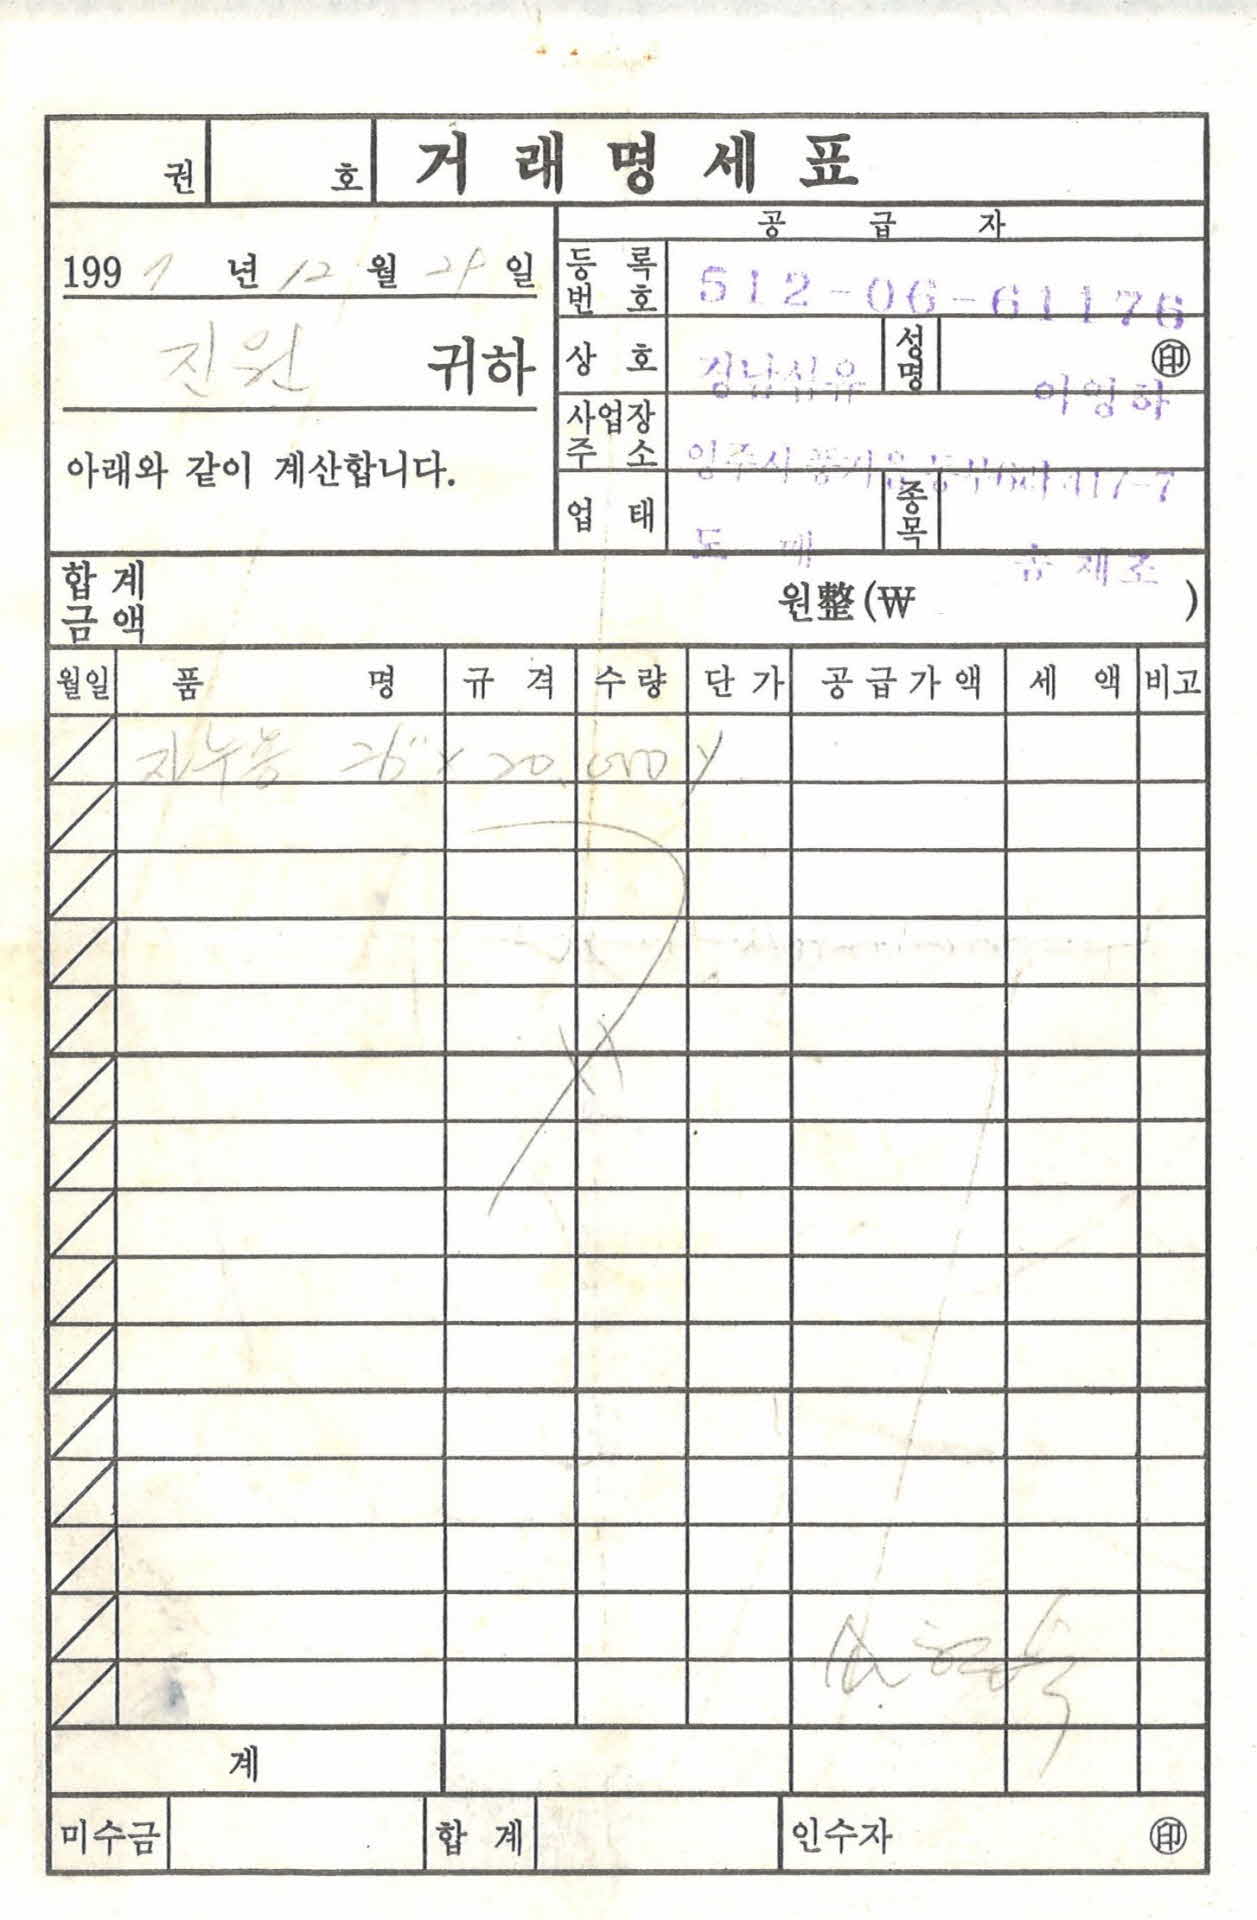 권 호 거 래 명 세 표
공 급 자
1997 년 12 월 29 일
등 록 번 호 512-06-61176
진원 귀하
상 호 성명 이영하 ㊞
사업장 주 소 영주시 풍기읍 동부 417-7
아래와 같이 계산합니다.
업 태 도 매 종목
합 계 금 액 원整(₩ )
월일 품 명 규 격 수 량 단 가 공 급 가 액 세 액 비고
26" x 20,000 y
계
미수금 합 계 인수자 ㊞